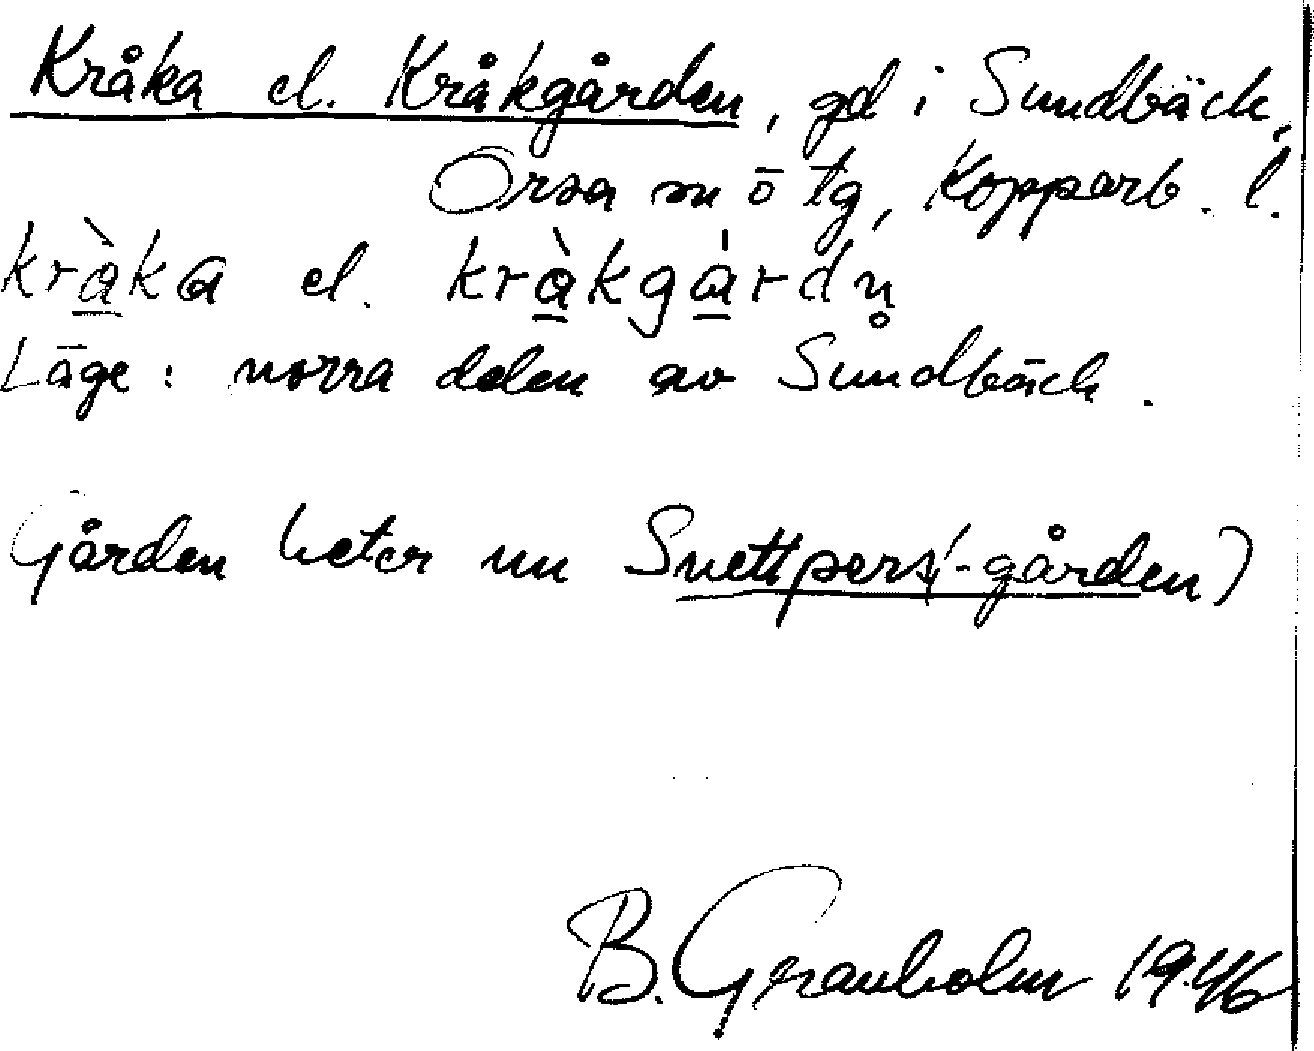 Kråka el. Kråkgården, gd i Sundbäck,
Orsa sn o tg, Kopparb. l.
kràka el. kràkgárdn̥
Läge: norra delen av Sundbäck.
Gården heter nu Snettpers(-gården)
B. Geranholm 1946